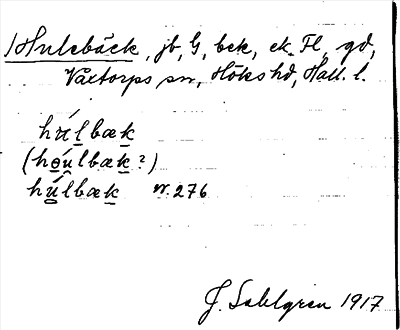 Hulebäck, jb, G, bek, ek. Fl, gd,
Våxtorps sn, Höks hd, Hall. l.
húl̲bæk̲
(ho̲úlbæk̲?)
hú̲lbæk̲ nr. 276
J. Sahlgren 1917